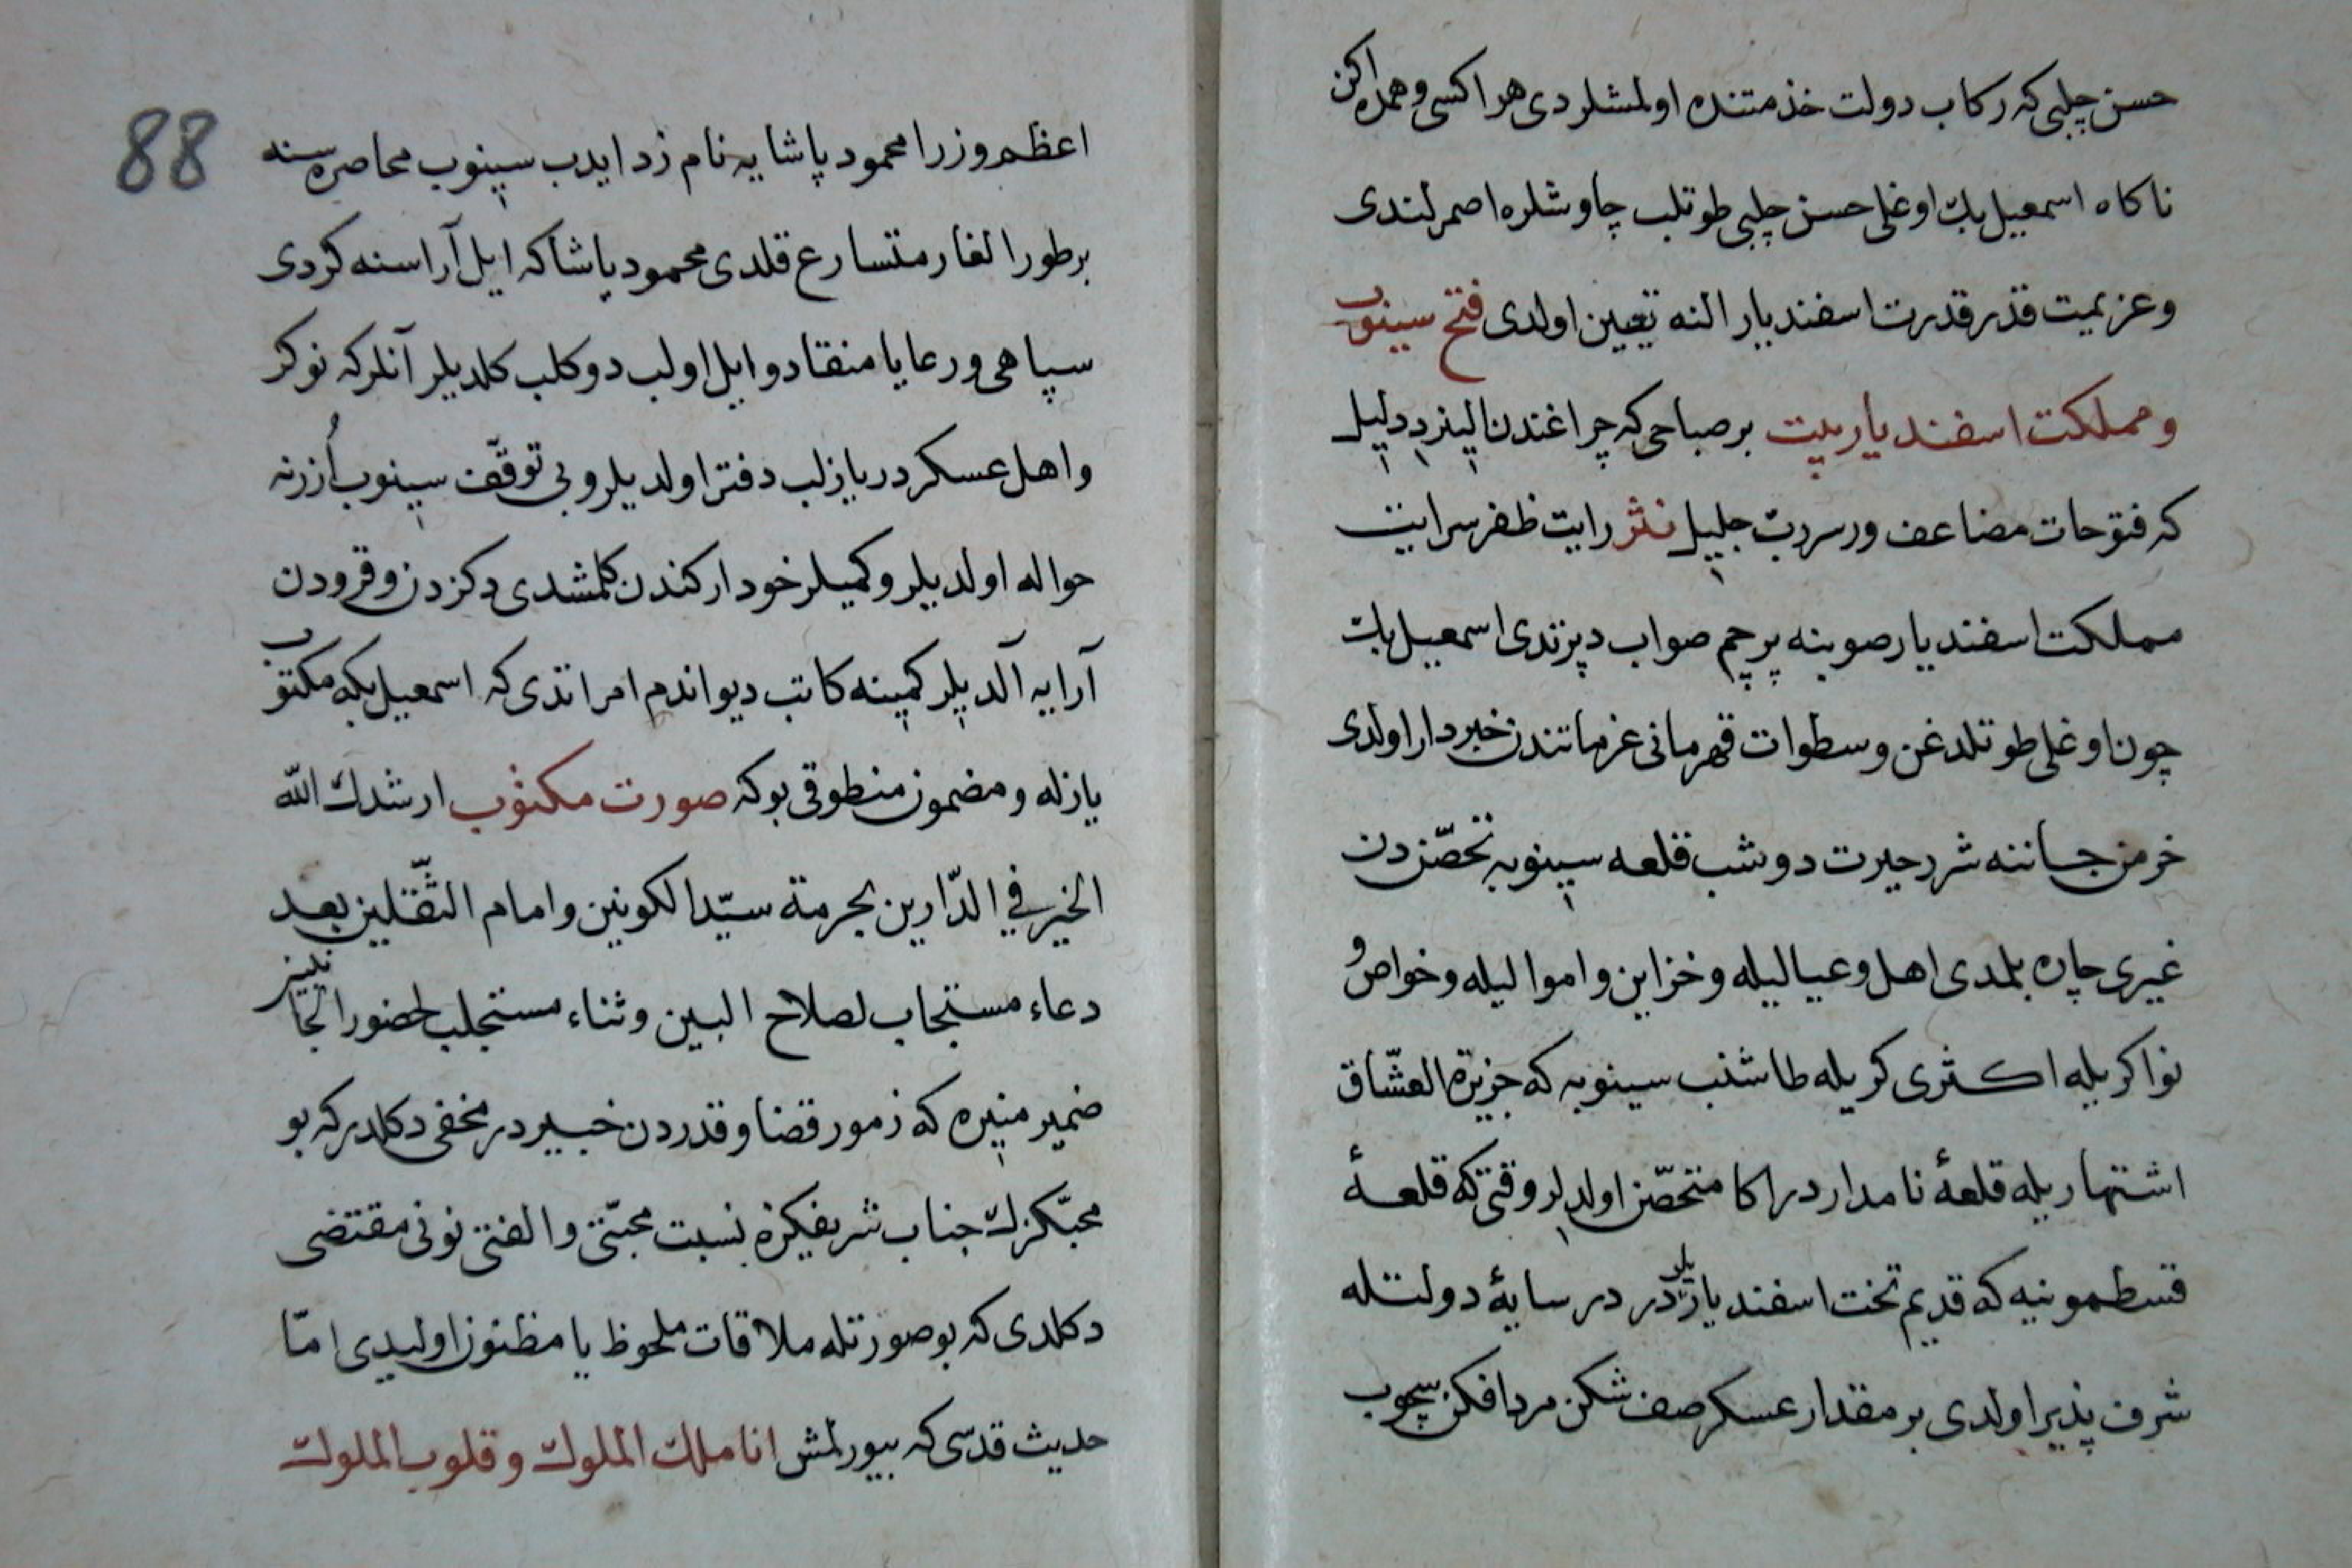 حسن چلبی که رکاب دولت خذمتنده اولمشلردی هر اکسی و همده اکن
ناکاه اسمعیل بك اوغلی حسن چلبی طوتلب چاوشلره اصمرلندی
وعزیمت قذر قدرت اسفندیار النه تعیین اولدی فتح سینوب
ومملکت اسفندیار بیت بر صباحی که چراغندن
که فتوحات مضاعف ورر رب جلیل نثر رایت ظفر سرایت
مملکت اسفندیار صوبنه پرچم صواب دپرتدی اسمعیل بك
چون اوغلی طوتلدغن وسطوات قهرمانی عزماتندن خبردار اولدی
خرمن جاننه شرر حیرت دوشب قلعه سینوبه تحصّن دن
غیری چاره بلمدی اهل وعیالیله وخزاین واموالیله وخواص و
نواکریله اکثری کریله طاشنب سینوبه که جزیرة العشّاق
اشتهاریله قلعۀ نامداردر اکا متحصّن اولدلر وقتی که قلعۀ
قسطمونیه که قدیم تخت اسفندیاریلردر در سایۀ دولتله
شرف پذیر اولدی بر مقدار عسکر صف شکن مرد افکن سچوب
88
اعظم وزرا محمود پاشایه نام زد ایدب سینوب محاصره سنه
بر طور الغار متسارع قلدی محمود پاشا که ایل آراسنه کردی
سپاهی ورعایا منقاد وایل اولب دوکلب کلدیلر آنلر که نوکر
واهل عسکردر یازلب دفتر اولدیلر وبی توقّف سینوب اُزرنه
حواله اولدیلر وکمیلر خود ارکندن کلمشدی دکزدن وقرودن
آرایه آلدیلر کمینه کاتب دیواندم امر اتدی که اسمعیل بکه مکتوب
یازله ومضمون منطوقی بو که صورت مکتوب ارشدك الله
الخیر في الدّارین بحرمة سیّد الکونین وامام الثّقلین بعد
دعاء مستجاب لصلاح البین وثناء مستجلب لحضور الجانبین
ضمیر منیره که زمور قضا وقدردن خبیردر مخفی دکلدر که بو
محبّکزك جناب شریفکزه نسبت محبّتی والفتی نونی مقتضی
دکلدی که بو صورتله ملاقات ملحوظ یا مظنون اولیدی امّا
حدیث قدسی که بیورلمش انا ملك الملوك وقلوب الملوك